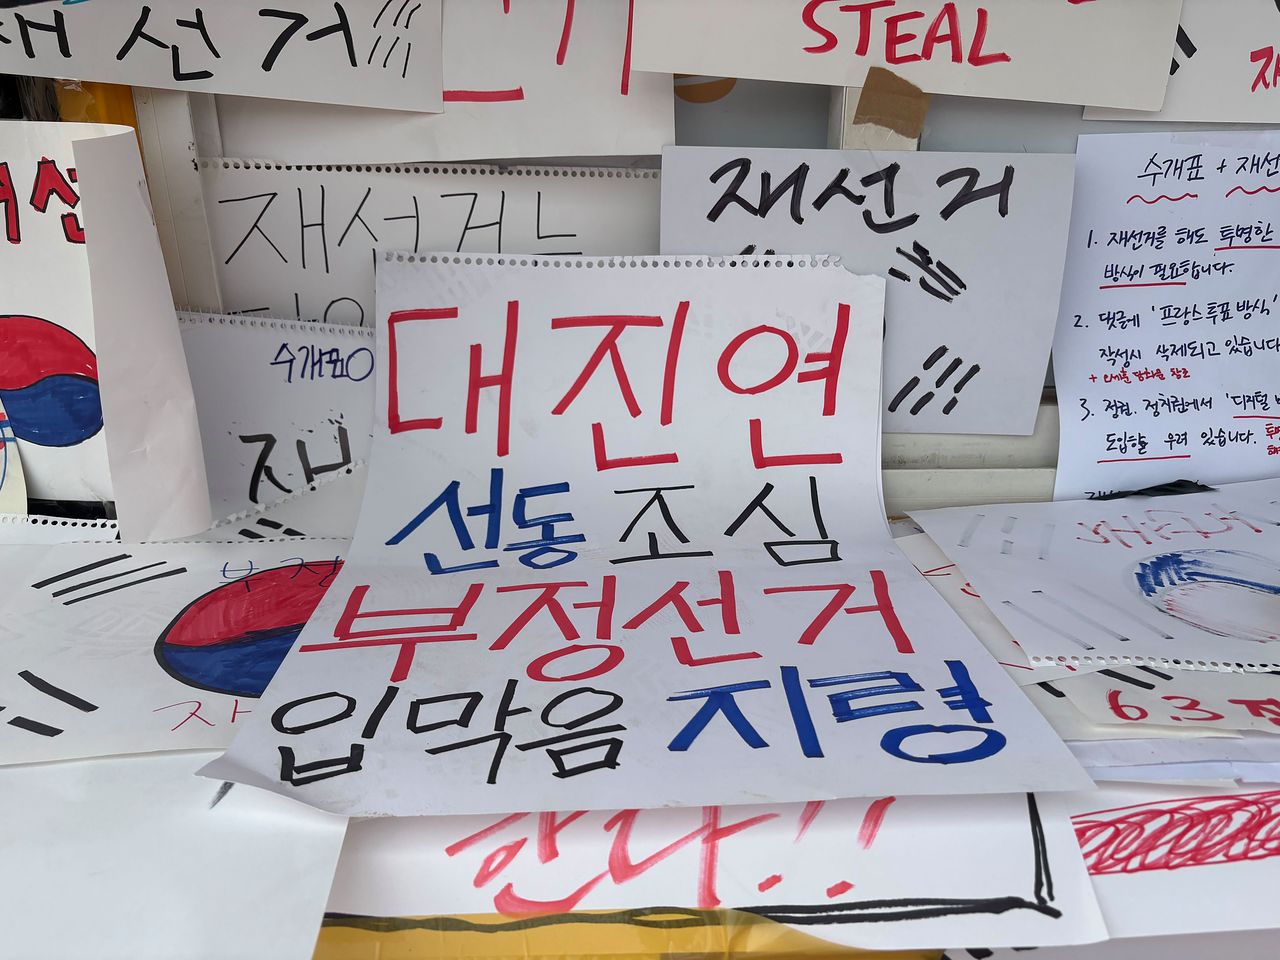 재 선 거
STEAL
재선거는
재선거
수개표 + 재선
1. 재선거를 해도 투명한
방식이 필요합니다.
2. 댓글에 '프랑스 투표 방식'
작성시 삭제되고 있습니다
3. 정권, 정치권에서 '디지털
도입할 우려 있습니다.
수개표O
대진연
선동 조심
부정선거
입막음 지령
부정
자
6.3
한다!!